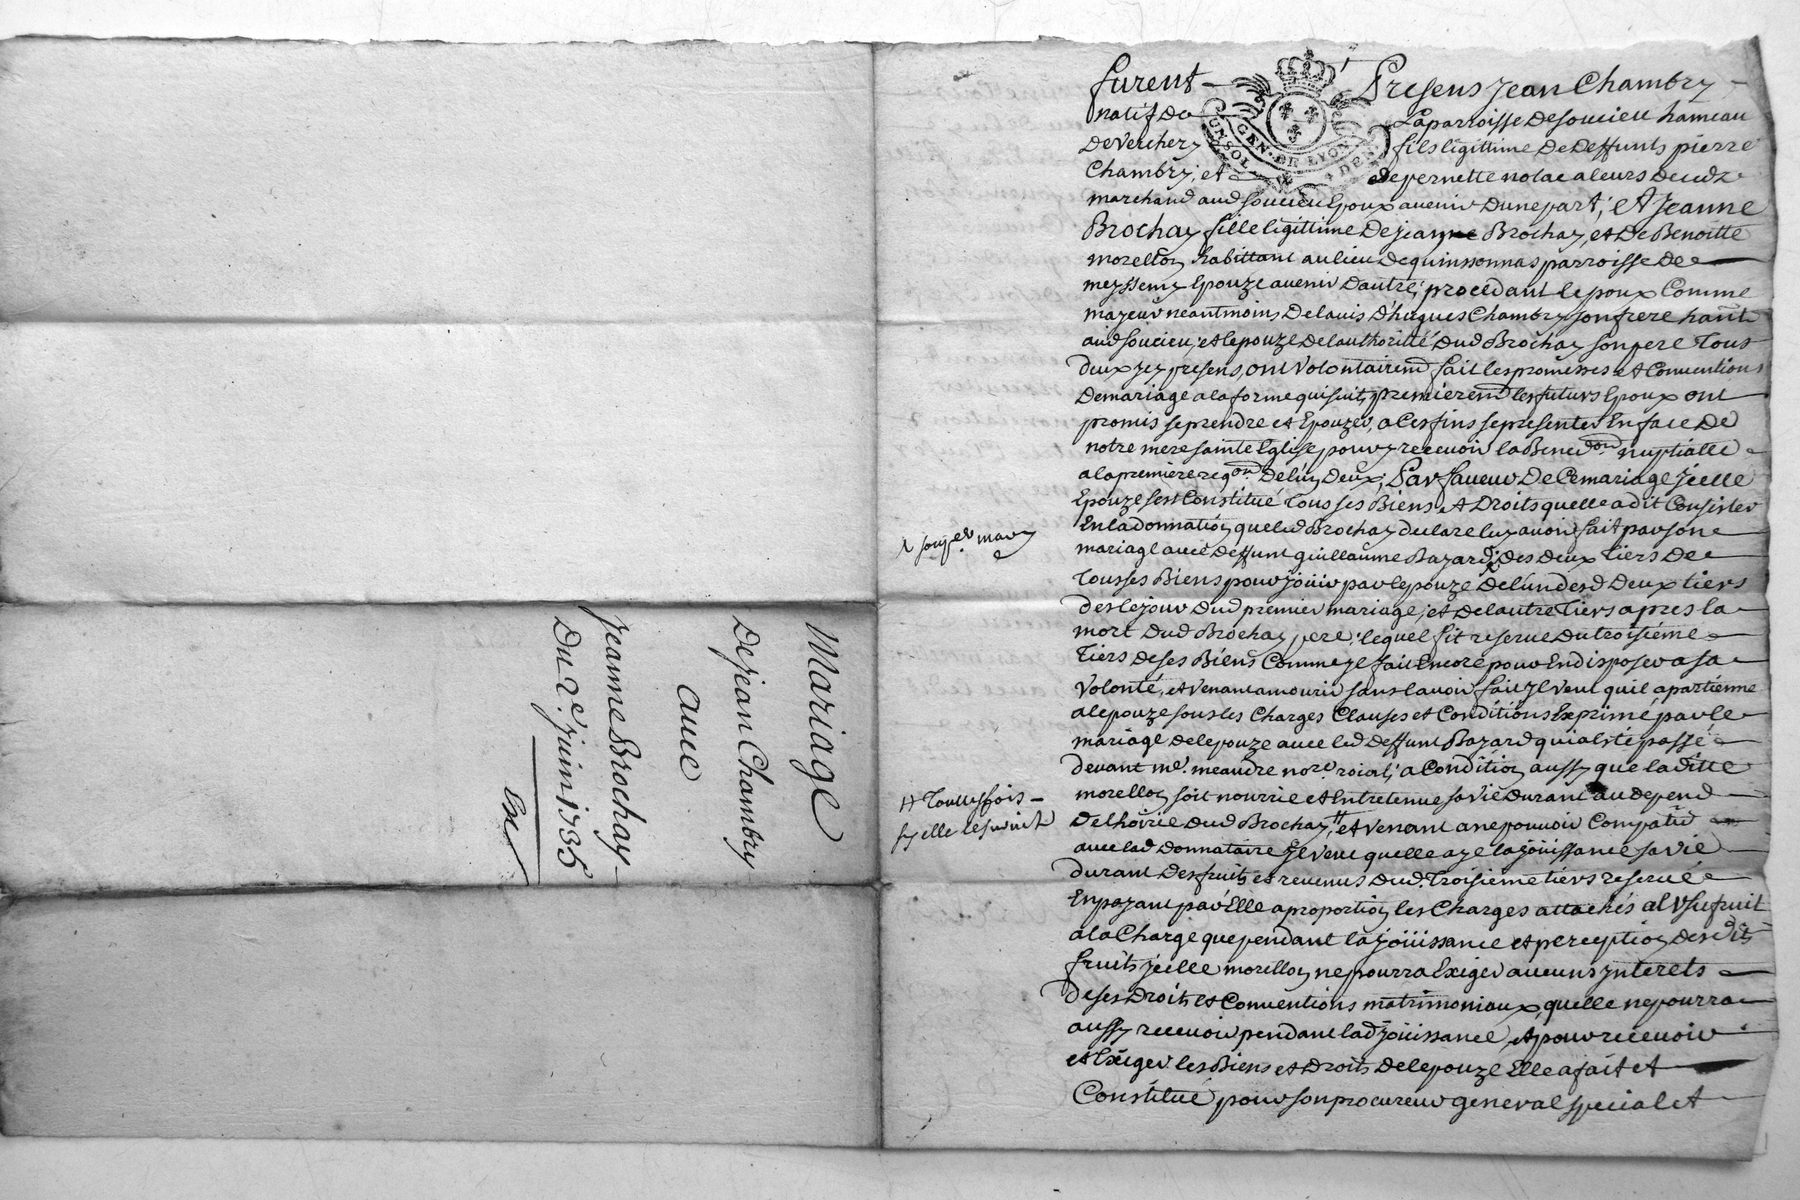 Mariage
De Jean Chambry
avec
Jeanne Brochay
Du 2e. juin 1735
furent Presens Jean Chambry
natif de La parroisse de soucieu hameau
De Verchery fils legittime De Deffunts pierre
Chambry, et de pernette
marchand aud soucieu Epoux avenir Dune part, et Jeanne
Brochay fille legittime De jean Brochay, et De Benoitte
morellon habittant au lieu de quinsonnas parroisse De
meyssemy Epouze avenir D'autre, procedant lepoux Comme
majeur neantmoins De lavis D'hugues Chambry son frere hant
aud soucieu, et lepouze De lauthoritté Dud Brochay son pere tous
deux jcy presens, ont Volontairemt fait les promesses et Conventions
De mariage a la forme qui suit, premieremt les futurs Epoux ont
promis se prendre et Epouzer, a Ces fins se presenter En face De
notre mere sainte Eglise pour y recevoir la Benedon nuptialle
a la premiere reqon De lun Deux, Par faveur De Ce mariage jcelle
Epouze sest Constitué tous ses Biens et Droits quelle a dit Consister
En la donnation que led Brochay declare luy avoir fait par son
mariage avec deffunt guillaume Bazard des deux tiers De
tous ses Biens pour jouir par lepouze De lun desd Deux tiers
des le jour dud premier mariage, et De lautre tiers apres la
mort Dud Brochay pere, lequel fit reserve Du troisiéme
tiers De ses Biens Comme jl fait Encore pour En disposer a sa
Volonté, et venant a mourir sans lavoir fait jl veut quil apartienne
a lepouze sous les Charges Clauses et Conditions Exprimé par le
mariage De lepouze avec led deffunt Bazard qui a Esté passé
devant me. meandre nore. roial, a Condition aussy que la ditte
morellon soit nourrie et Entretenue sa vie Durant au depend
De lhoirie Dud Brochay, H et venant a ne pouvoir Compatir
avec lad Donnataire jl veut quelle aye la jouissance sa vie
durant Des fruits et revenus Dud. troisieme tiers reservé
En payant par Elle a proportion les Charges attachés al Usufruit
a la Charge que pendant la jouissance et perception Desdts
fruits jcelle morellon ne pourra Exiger aucuns jnterets
De ses Droits et Conventions matrimoniaux, quelle ne pourra
aussy recevoir pendant lad jouissance, et pour recevoir
et Exiger les Biens et Droits De lepouze Elle a fait et
Constitué pour son procureur general special et
H Touttesfois
sy elle le